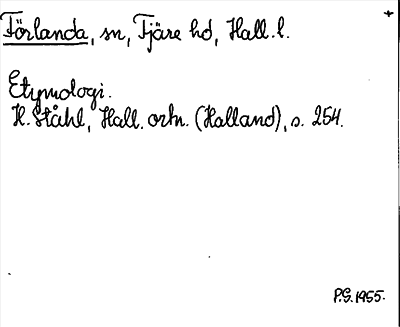 Förlanda, sn, Fjäre hd, Hall. l.
Etymologi.
H. Ståhl, Hall. ortn. (Halland), s. 254.
P.G. 1955.